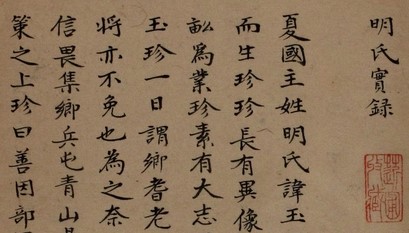 明氏實録
夏國主姓明氏諱玉
而生珍珍長有異像
畝為業珍素有大志
玉珍一日謂鄉耆老
將亦不免也為之奈
信畏集鄉兵屯青山
策之上珍曰善因部